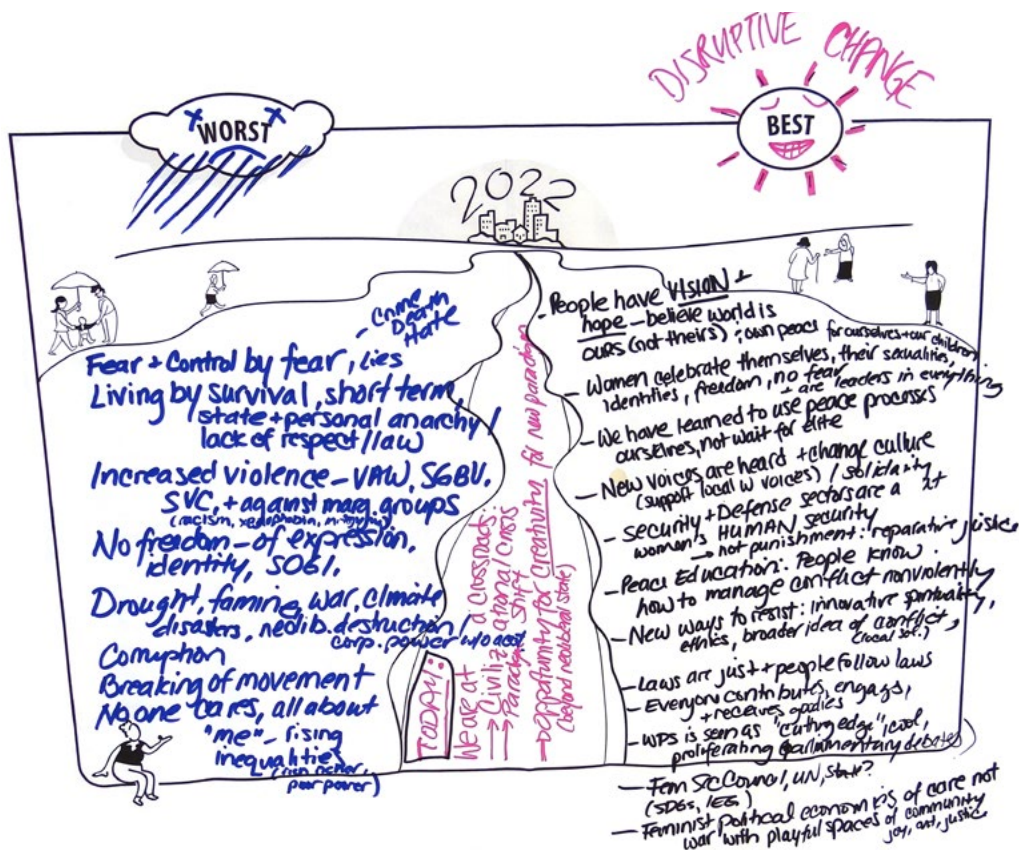 DISRUPTIVE CHANGE
WORST
BEST
2022
- Crime
Death
Hate
Fear + Control by fear, lies
Living by survival, short term,
state + personal anarchy /
lack of respect / law
Increased violence - VAW, SGBV,
SVC, + against marg. groups
(racism, xenophobia, misogyny)
No freedom - of expression,
identity, SOGI.
Drought, famine, war, climate
disasters, neolib. destruction /
corp. power w/o
Corruption
Breaking of movement
No one cares, all about
"me" - rising
inequalities
(rich richer,
poor poorer)
TODAY:
We are at a crossroads
→ Civilizational Crisis
→ Paradigm Shift
→ Opportunity for Creativity for new paradigm
(beyond neoliberal state)
- People have VISION +
hope - believe world is
OURS (not theirs); own peace for ourselves + our children
- Women celebrate themselves, their sexualities,
identities, freedom, no fear
+ are leaders in everything
- We have learned to use peace processes
ourselves, not wait for elite
- New voices are heard + change culture
(support local W voices) / solidarity
- Security + Defense sectors are a
women's HUMAN security
→ not punishment: reparative justice
- Peace Education: People know
how to manage conflict nonviolently
- New ways to resist: innovative spirituality,
ethics, broader idea of conflict,
(local sol.)
- Laws are just + people follow laws
- Everyone contributes, engages,
+ receives
- WPS is seen as "cutting edge", cool,
proliferating (parliamentary debates)
- Fem Sec Council, UN, State?
(SDGs,
- Feminist political economies of care not
war with playful spaces of community
joy, art, justice